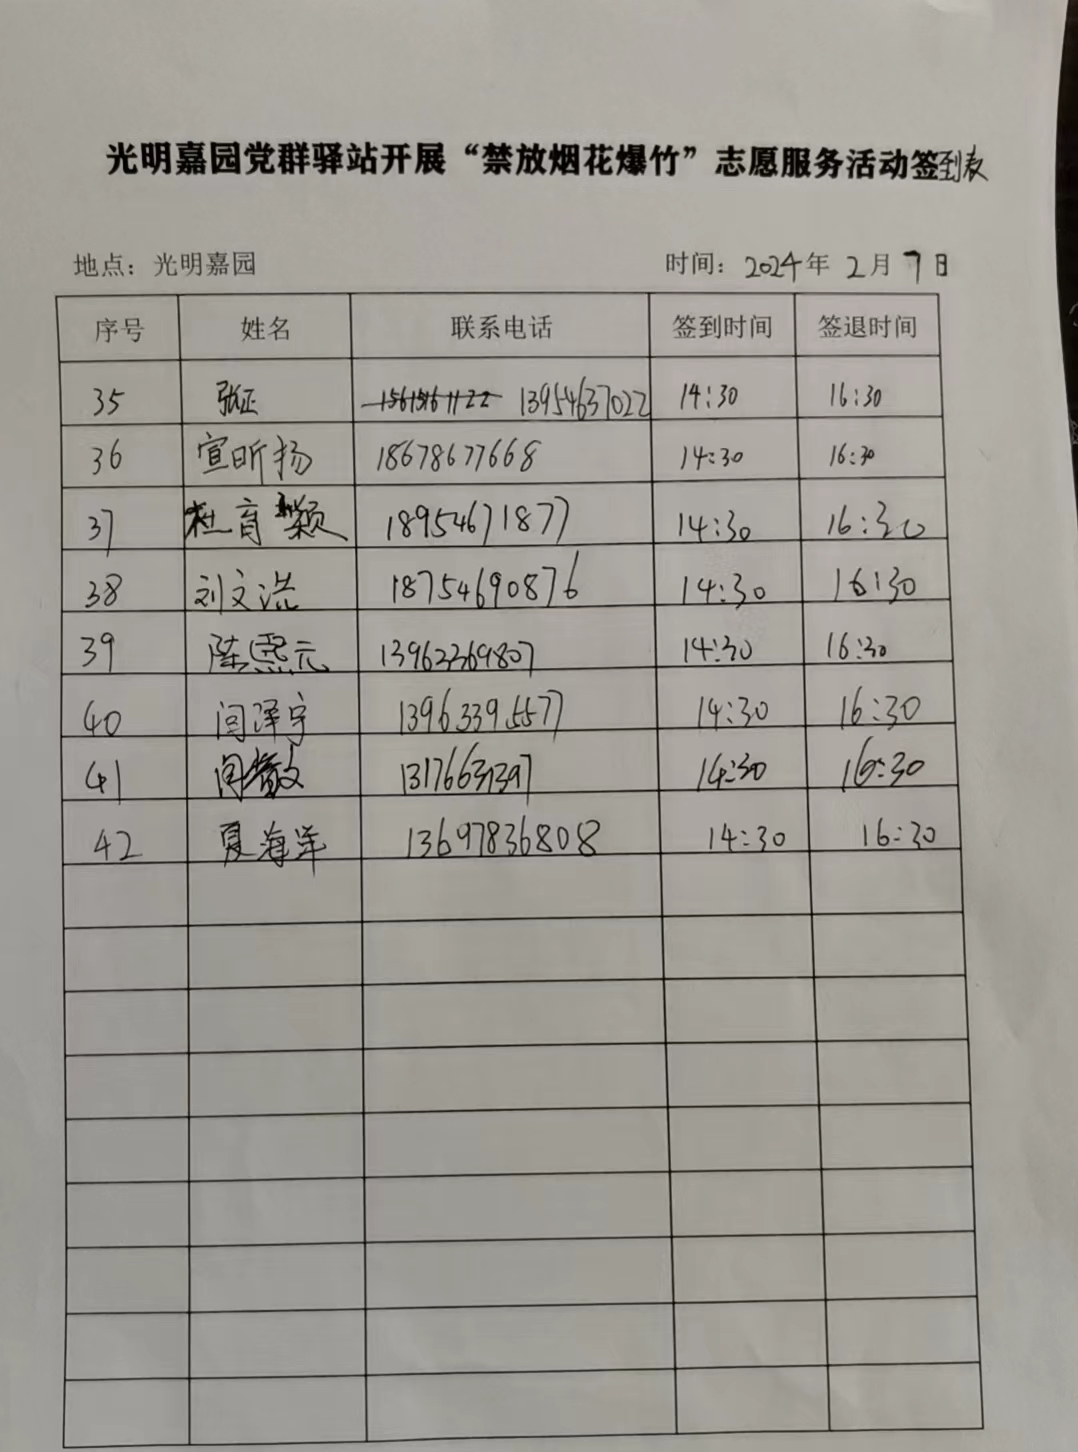 光明嘉园党群驿站开展“禁放烟花爆竹”志愿服务活动签到表
地点：光明嘉园 时间：2024年 2月 7日
序号 姓名 联系电话 签到时间 签退时间
35 张正 15615161122 13954637022 14:30 16:30
36 宣昕扬 18678677668 14:30 16:30
37 杜育颖 18954671877 14:30 16:30
38 刘文浩 18754690876 14:30 16:30
39 陈霈元 13963369807 14:30 16:30
40 闫泽宇 13963395577 14:30 16:30
41 闫 13176631397 14:30 16:30
42 夏海洋 13697836808 14:30 16:30